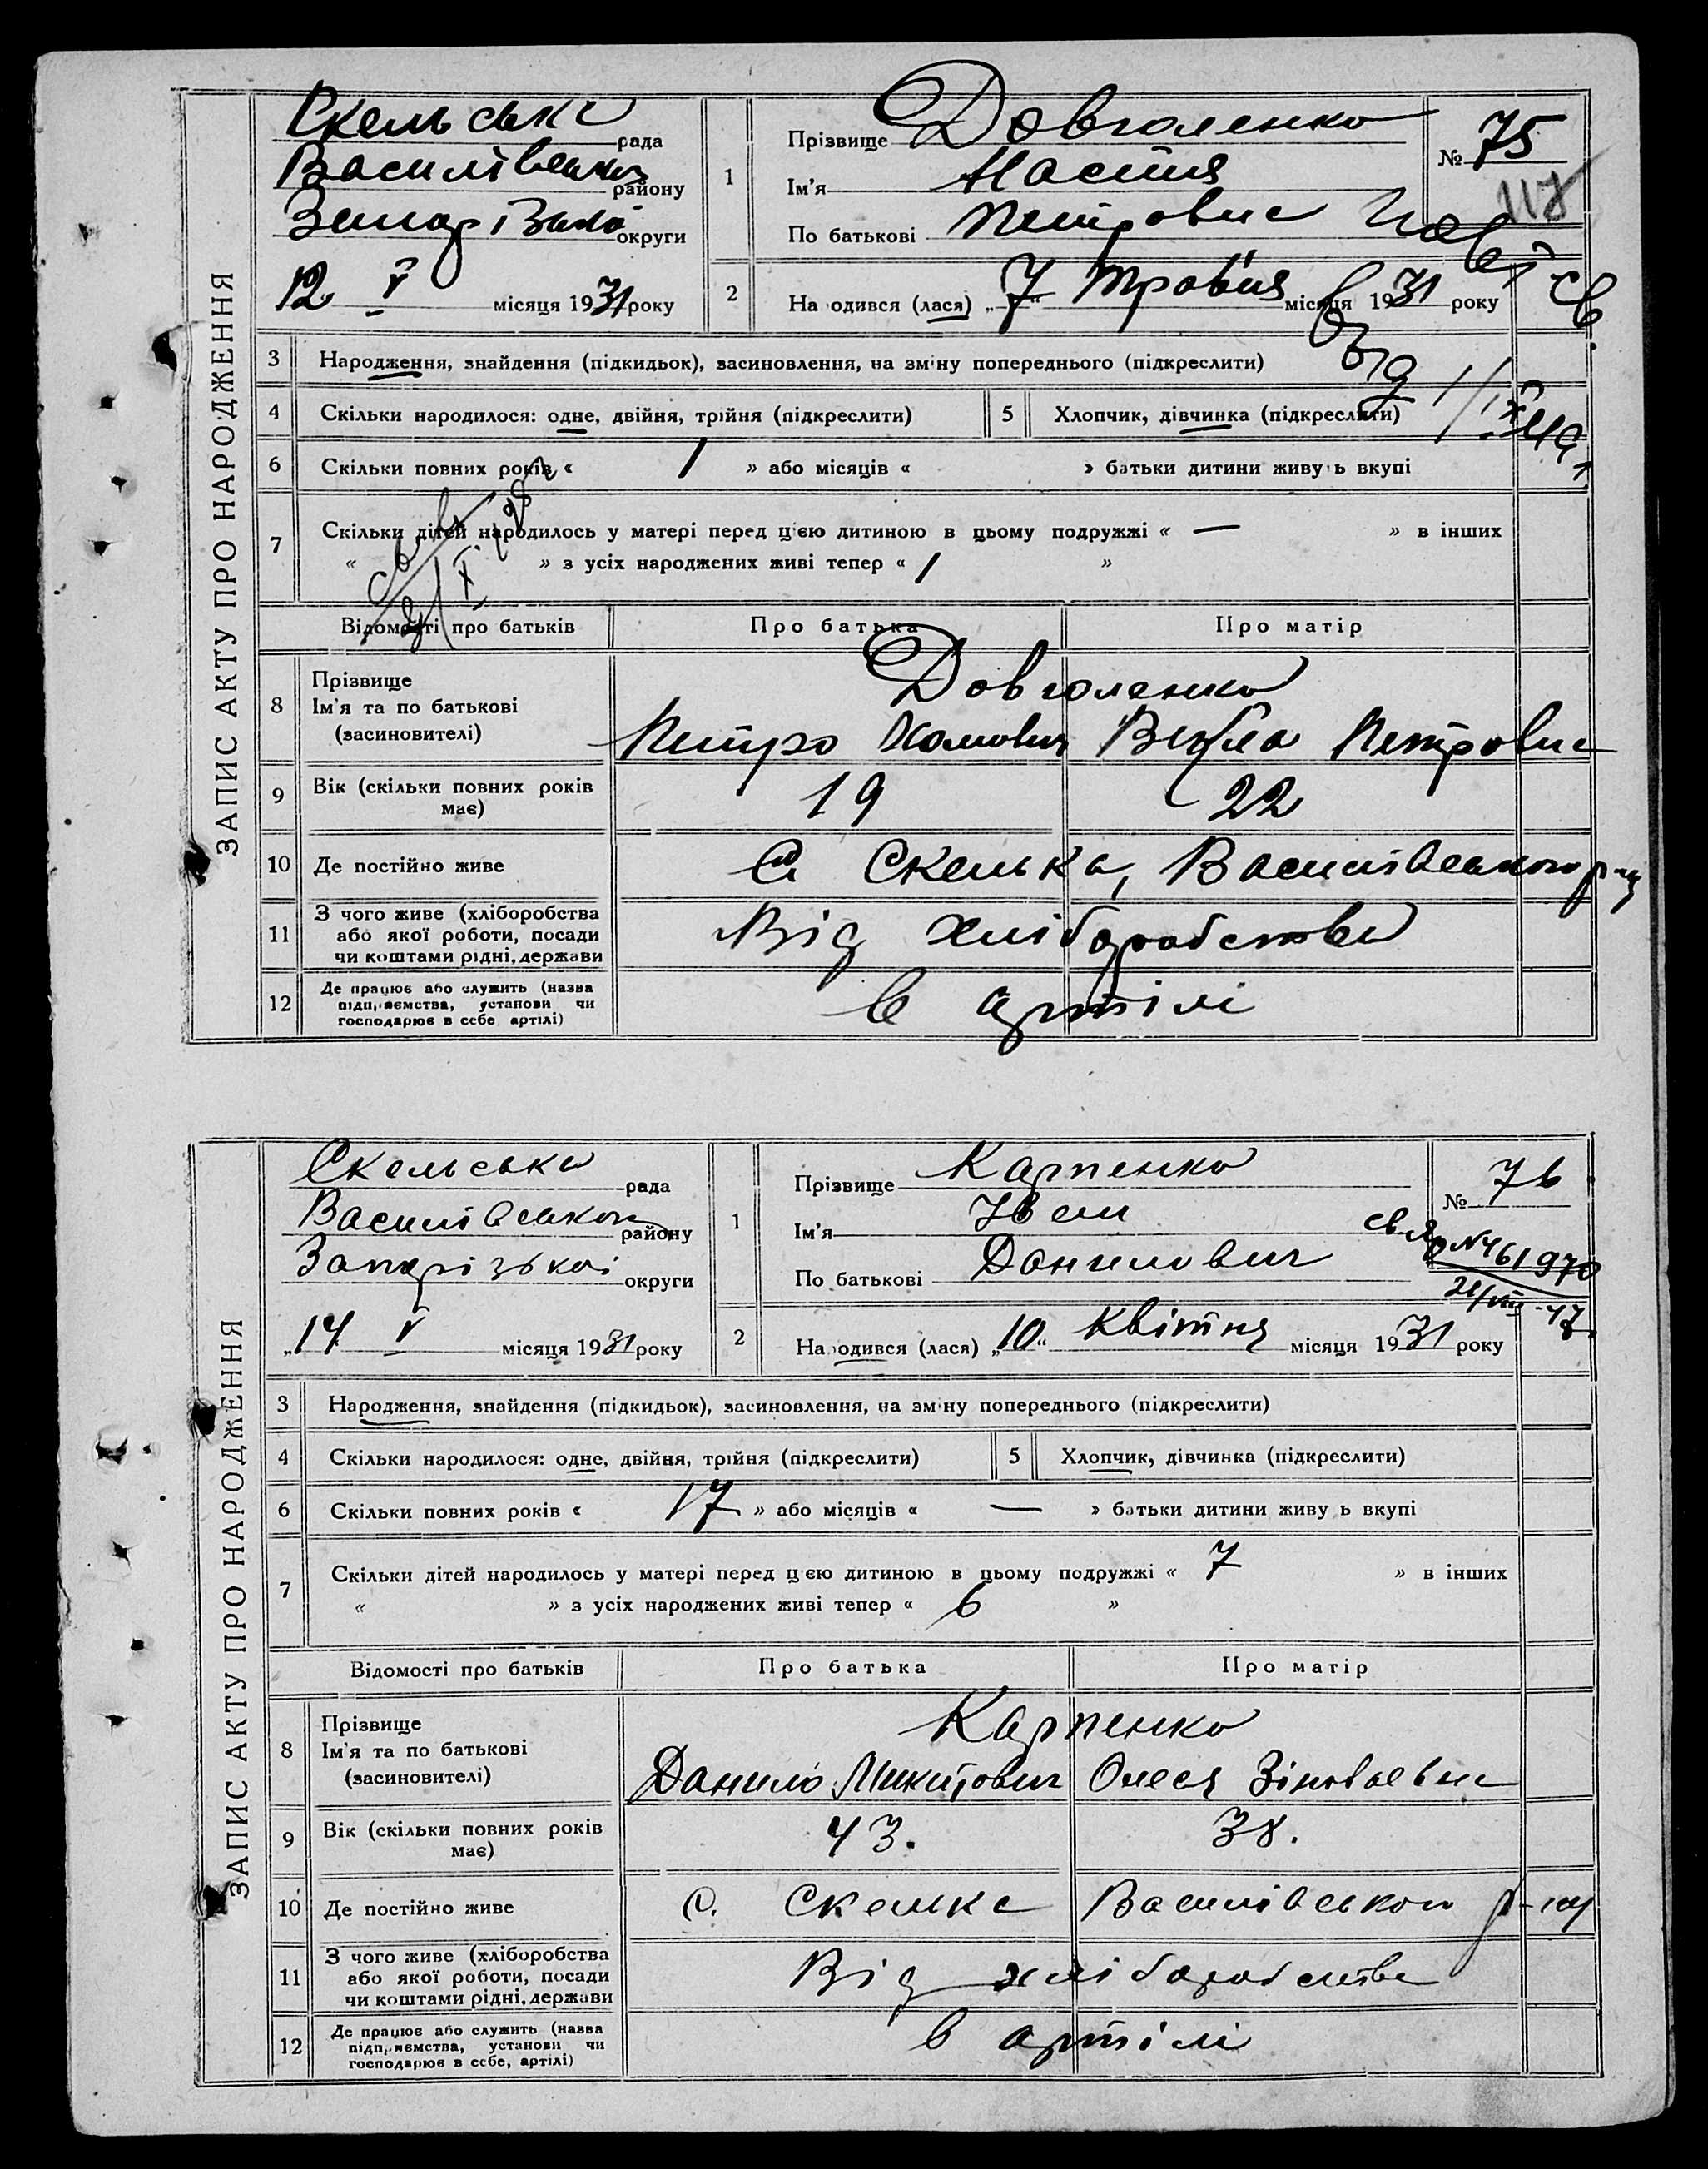 ЗАПИС АКТУ ПРО НАРОДЖЕННЯ
Скельська рада
Василівського району
Запорізької округи
12 V місяця 1931 року
1
Прізвище Довголенко
Ім'я Настя
По батькові Петровна
№ 75
117
2
Народився (лася) „7“ травня місяця 1931 року
3 Народження, знайдення (підкидьок), засиновлення, на зміну попереднього (підкреслити)
4 Скільки народилося: одне, двійня, трійня (підкреслити)
5 Хлопчик, дівчинка (підкреслити)
6 Скільки повних років « 1 » або місяців « » батьки дитини живуть вкупі
7 Скільки дітей народилось у матері перед цією дитиною в цьому подружжі « — » в інших
« » з усіх народжених живі тепер « 1 »
Відомості про батьків Про батька Про матір
8 Прізвище
Ім'я та по батькові
(засиновителі)
Довголенко
Петро Хомович Векла Петровна
9 Вік (скільки повних років має) 19 22
10 Де постійно живе С Скелька, Василівського р-ну
11 З чого живе (хліборобства
або якої роботи, посади
чи коштами рідні, держави
Від хліборобства
12 Де працює або служить (назва
підприємства, установи чи
господарює в себе артілі)
в артілі
ЗАПИС АКТУ ПРО НАРОДЖЕННЯ
Скельська рада
Василівського району
Запорізької округи
„14 V місяця 1931 року
1
Прізвище Карпенко
Ім'я Іван
По батькові Данилович
№ 76
№ 461970
21/VIII-47
2
Народився (лася) „10“ Квітня місяця 1931 року
3 Народження, знайдення (підкидьок), засиновлення, на зміну попереднього (підкреслити)
4 Скільки народилося: одне, двійня, трійня (підкреслити)
5 Хлопчик, дівчинка (підкреслити)
6 Скільки повних років « 17 » або місяців « — » батьки дитини живуть вкупі
7 Скільки дітей народилось у матері перед цією дитиною в цьому подружжі « 7 » в інших
« » з усіх народжених живі тепер « 6 »
Відомості про батьків Про батька Про матір
8 Прізвище
Ім'я та по батькові
(засиновителі)
Карпенко
Данило Микитович Олеся Зіновьевна
9 Вік (скільки повних років має) 43. 38.
10 Де постійно живе С. Скелька Василівського р-ну
11 З чого живе (хліборобства
або якої роботи, посади
чи коштами рідні, держави
Від хліборобства
12 Де працює або служить (назва
підприємства, установи чи
господарює в себе, артілі)
в артілі